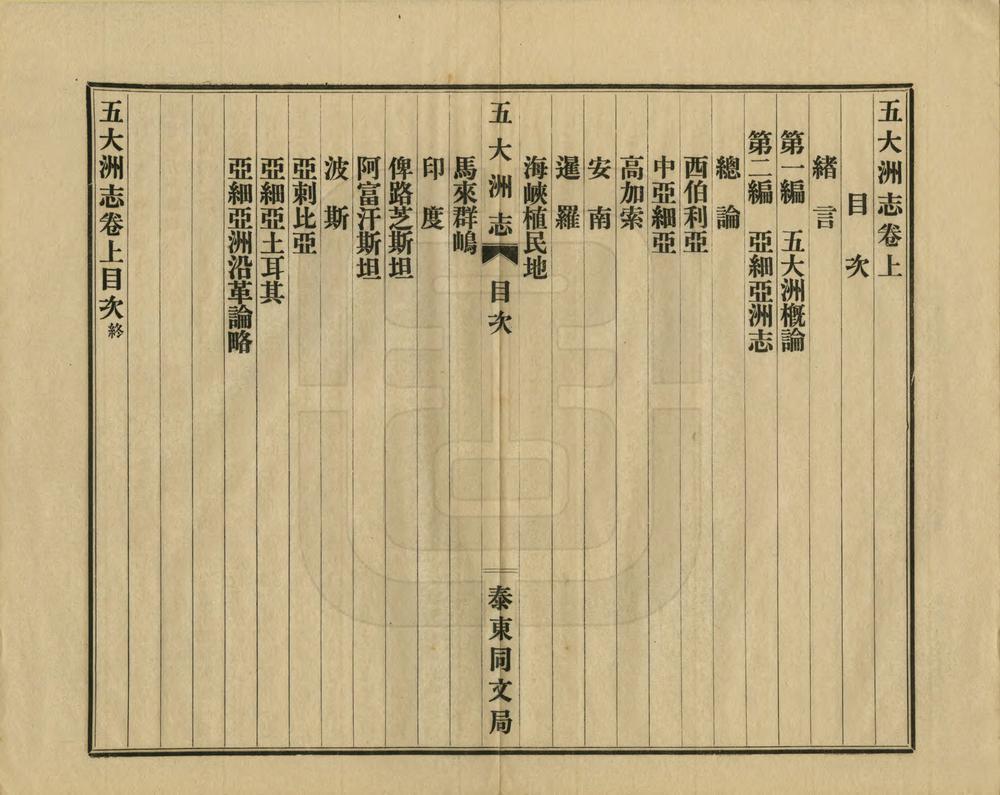 五大洲志卷上
目次
緒言
第一編 五大洲概論
第二編 亞細亞洲志
總論
西伯利亞
中亞細亞
高加索
安南
暹羅
海峽植民地
五大洲志 目次 泰東同文局
馬來群嶋
印度
俾路芝斯坦
阿富汗斯坦
波斯
亞剌比亞
亞細亞土耳其
亞細亞洲沿革論略
五大洲志卷上目次終